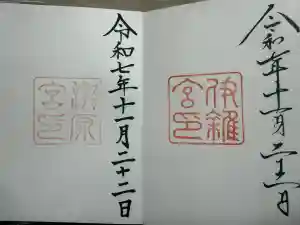 令和七年十一月二十二日
伊雜
宮印
令和七年十一月二十二日
瀧原
宮印